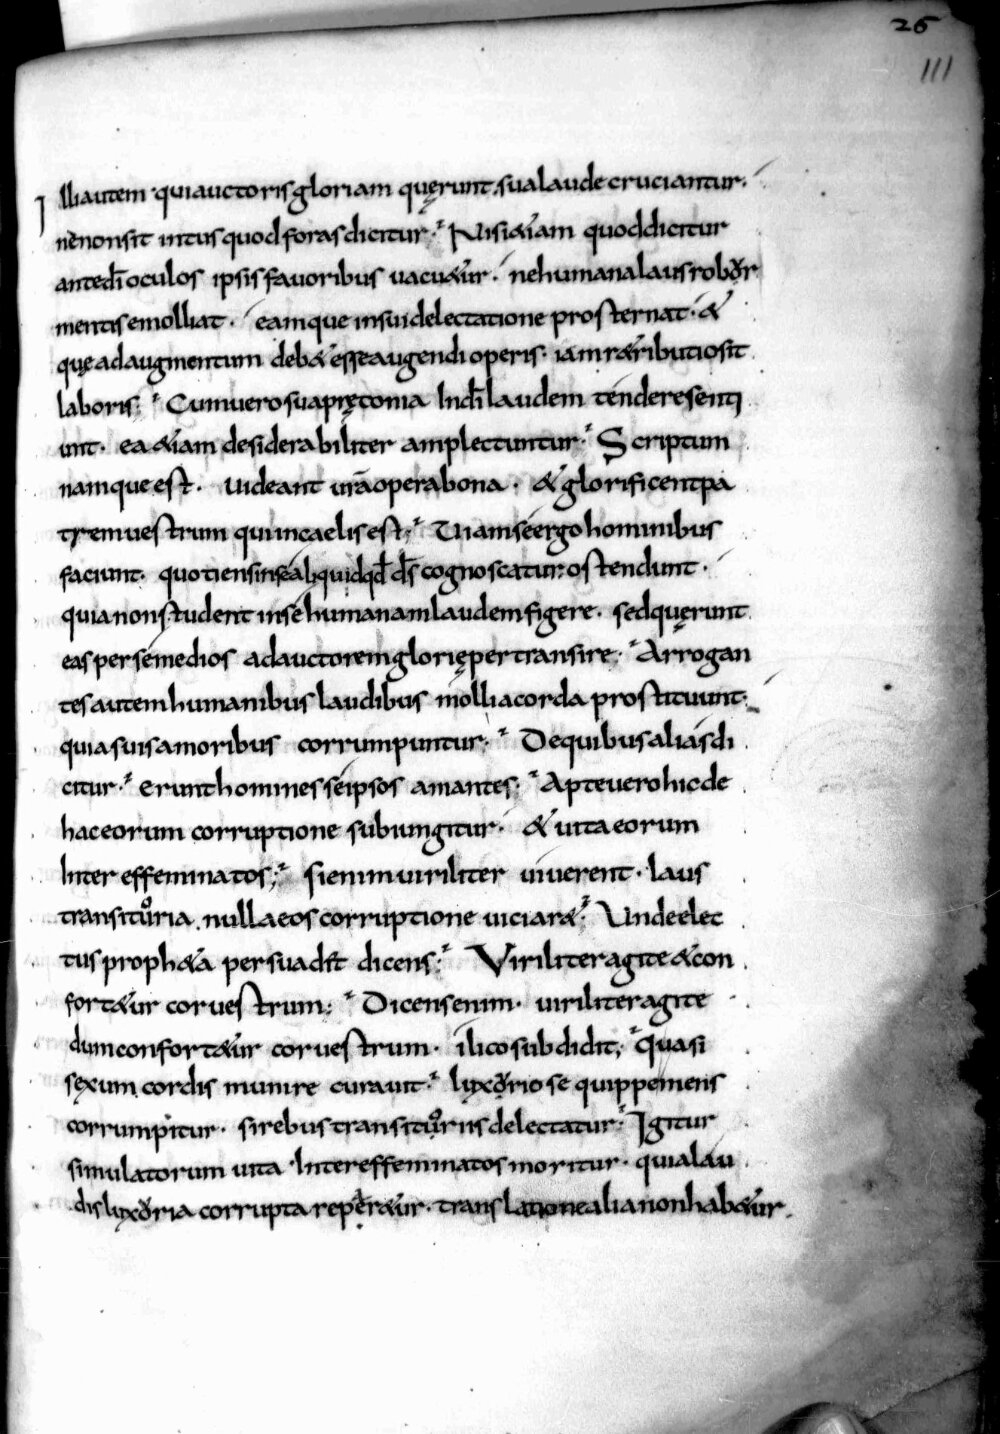 26
111
Illi autem · qui auctoris gloriam quęrunt · sua laude cruciantur ·
ne non sit intus quod foras dicitur · Nisi & iam quod dicitur
ante dī oculos ipsis favoribus vacu&ur · ne humana laus robor
mentis emolliat · eamque in sui delectatione prosternat · &
quę ad augmentum deb& esse augendi operis · iam r&ributio sit
laboris · Cum vero sua pręconia In dī laudem tendere senti
unt · ea &iam desiderabiliter amplectuntur · Scriptum
namque est · videant vr̄a opera bona · & glorificent pa
trem vestrum qui in caelis est · Viam se ergo hominibus
faciunt · quotiens in se aliquid qd̄ ds̄ cognoscatur ostendunt ·
quia non student in se humanam laudem figere · sed quęrunt
eas per se medios ad auctorem glorię pertransire · Arrogan
tes autem humanibus laudibus mollia corda prostituunt ·
quia suis amoribus corrumpuntur · De quibus alias di
citur · erunt homines se ipsos amantes · Apte vero hic de
hac eorum corruptione subiungitur · & vita eorum
Inter effeminatos · si enim viriliter viverent · laus
transitoria nulla eos corruptione viciar& · Unde elec
tus proph&a persuad&t dicens · Viriliter agite & con
fort&ur cor vestrum · Dicens enim · viriliter agite
dum confort&ur cor vestrum · ilico subdidit · quasi
sexum cordis munire curavit · luxorio se quippe mens
corrumpitur · si rebus transitoriis delectatur · Igitur
simulatorum vita Inter effeminatos moritur · quia lau
dis luxoria corrupta reper&ur · translatione alia non hab&ur ·